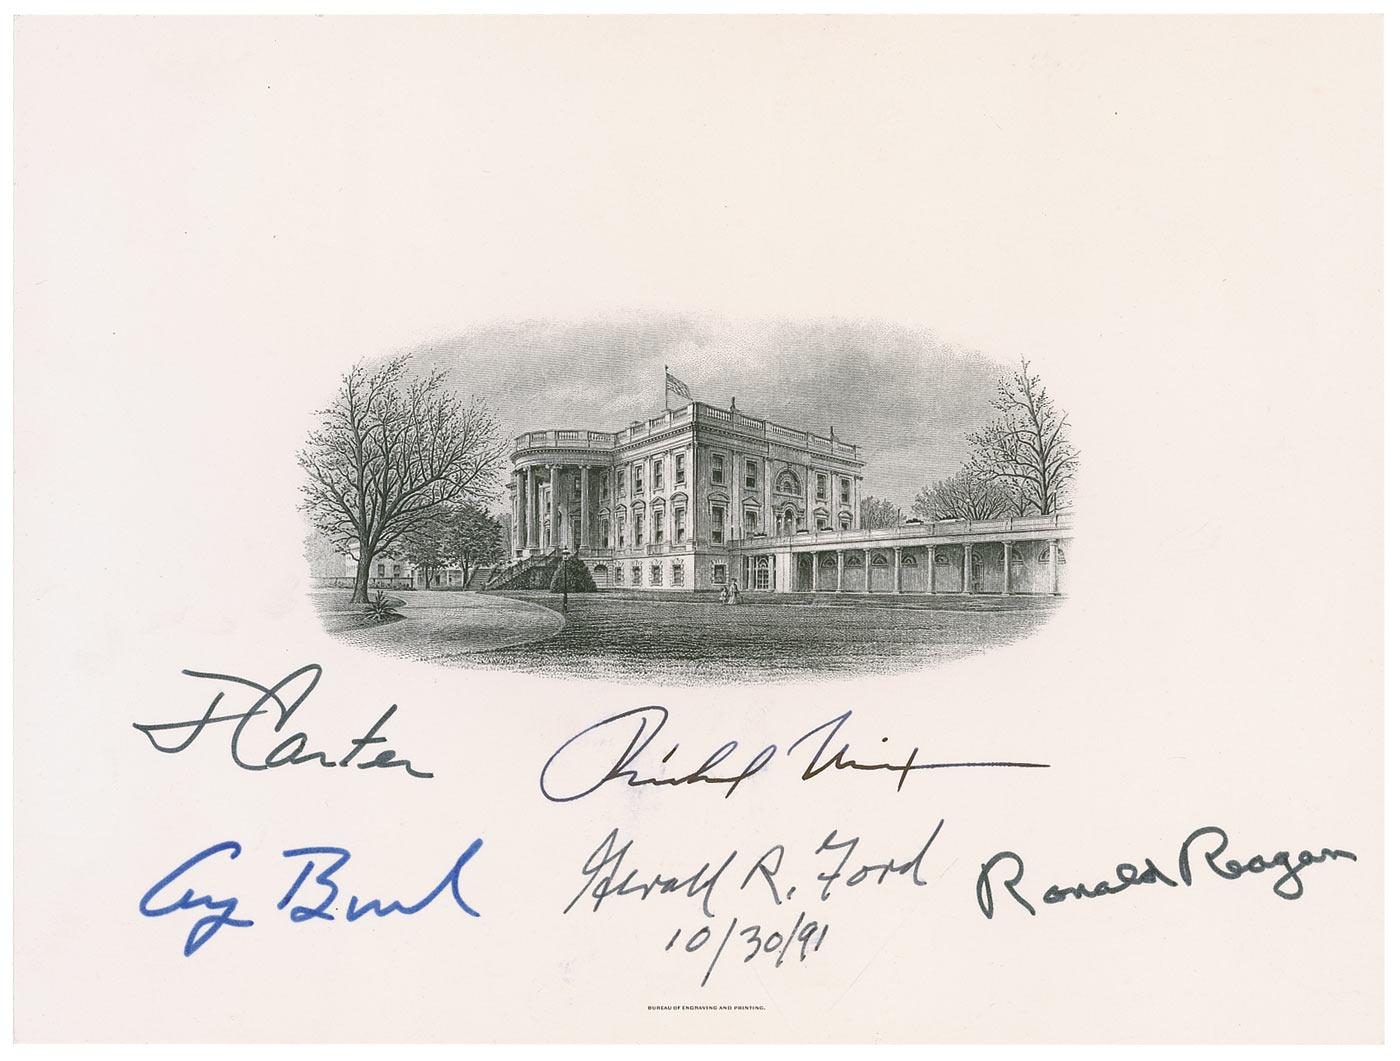 J Carter
Richard Nixon
G Bush
Gerald R. Ford
Ronald Reagan
10/30/91
BUREAU OF ENGRAVING AND PRINTING.